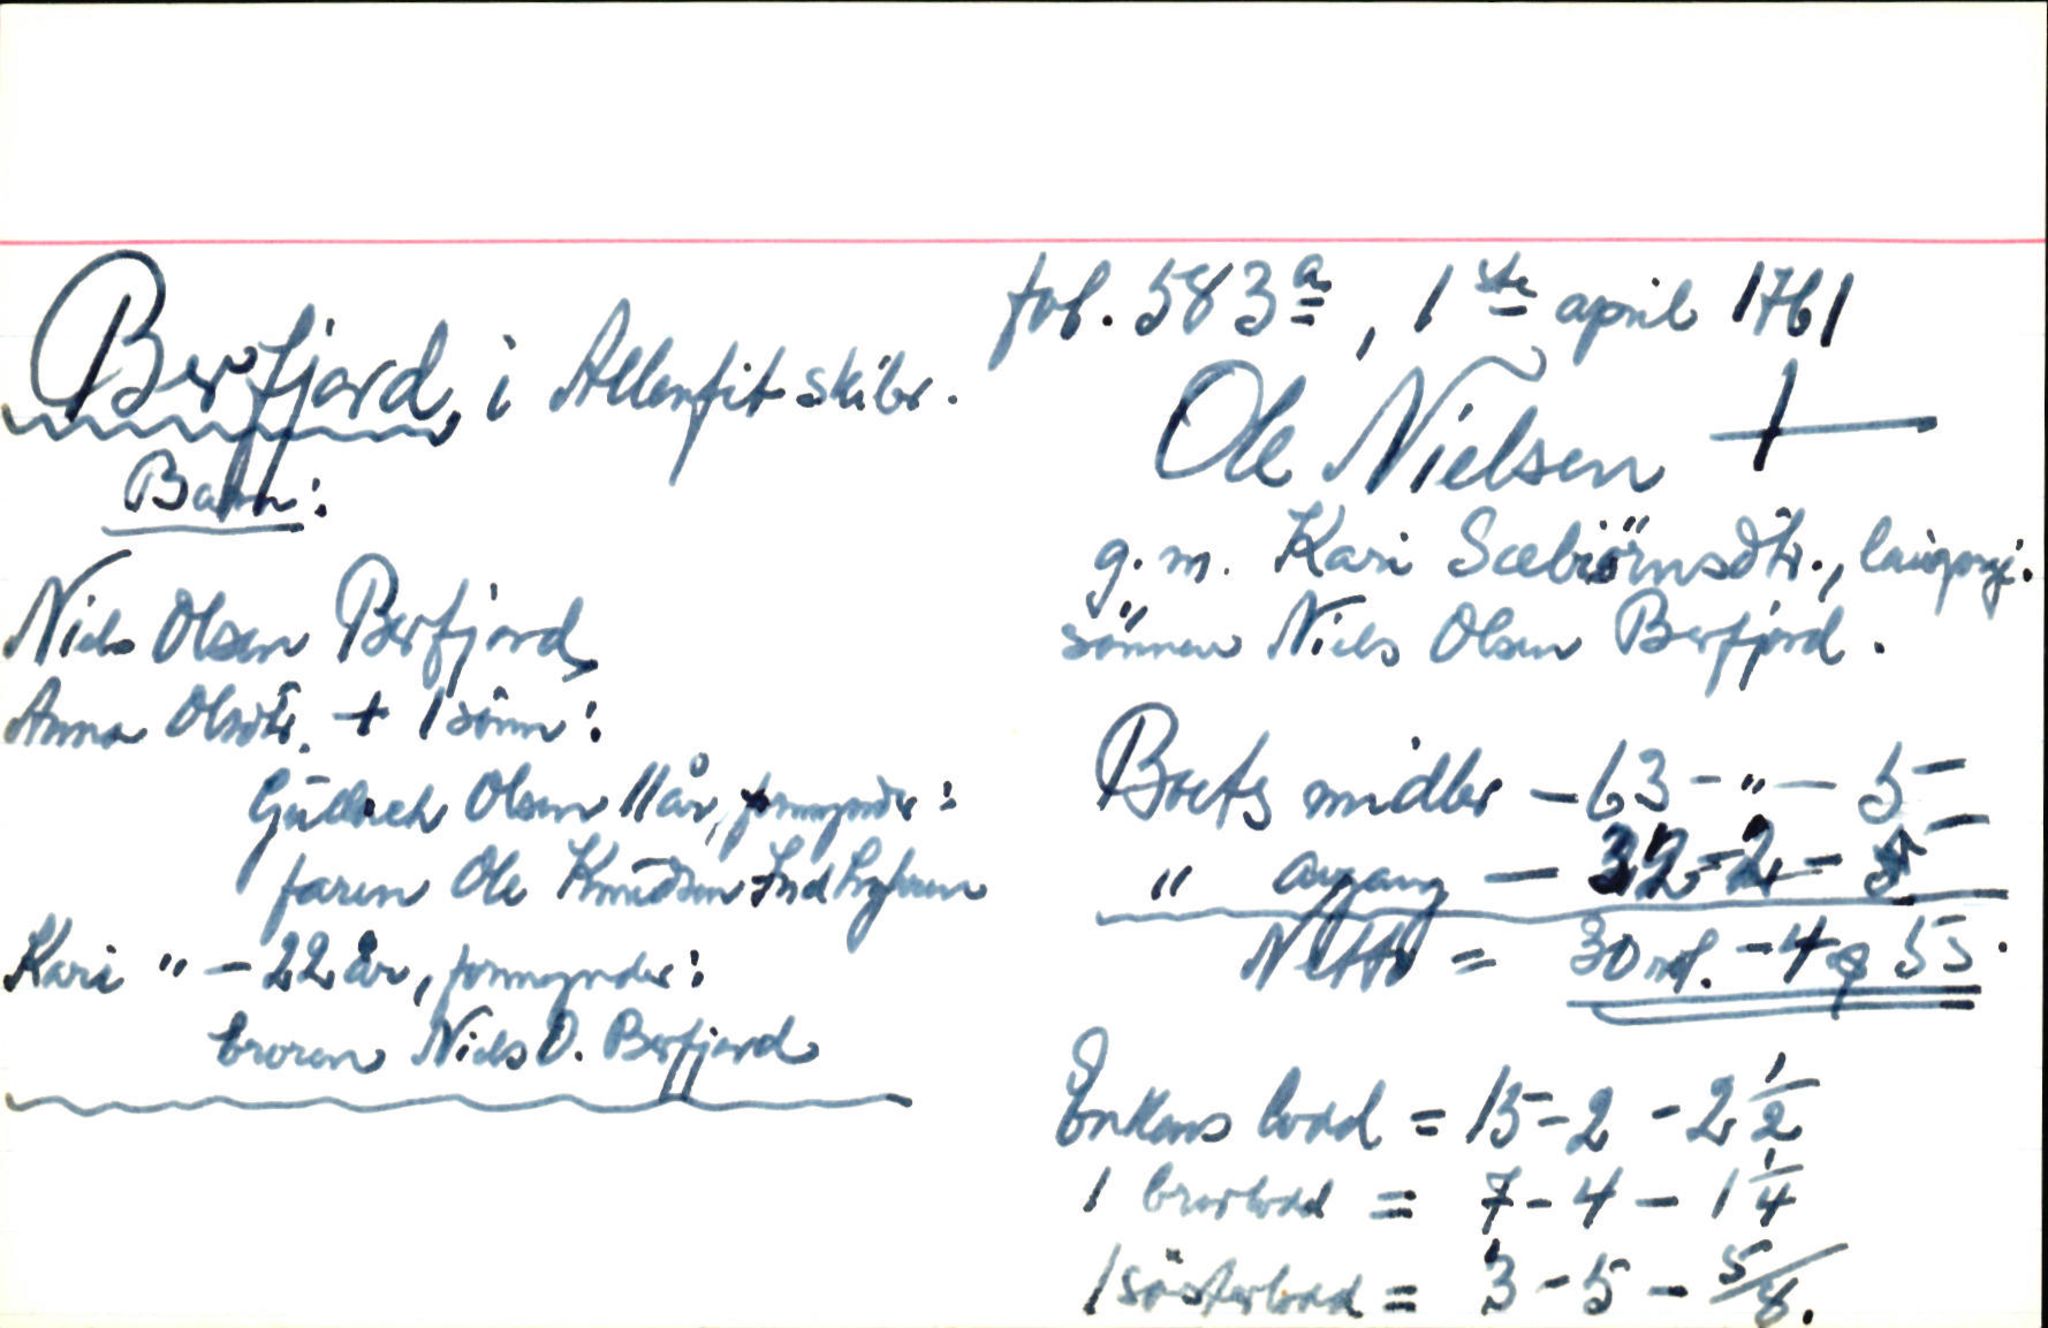 Berfjord, i Allenfit skibr.
Barn:
Niels Olsen Berfjord,
Anna Olsdtr. + 1 sönn:
Gullich Olsen 11 år, formynder:
faren Ole Knudsen Ind
Kari " - 22 år, formynder:
broren Niels O. Berfjord
fol. 583a, 1ste april 1761
Ole Nielsen +
g. m. Kari Sæbiörnsdtr., laugverge:
sönnen Niels Olsen Berfjord.
Boets midler - 63 - " - 5 -
" avgang - 32 - 2 -
Netto = 30 rd. - 4 ȹ 5 s.
Enkens lodd = 15 - 2 - 2 1/2
1 brorlodd = 7 - 4 - 1 1/4
1 sösterlodd = 3 - 5 - 5/8.